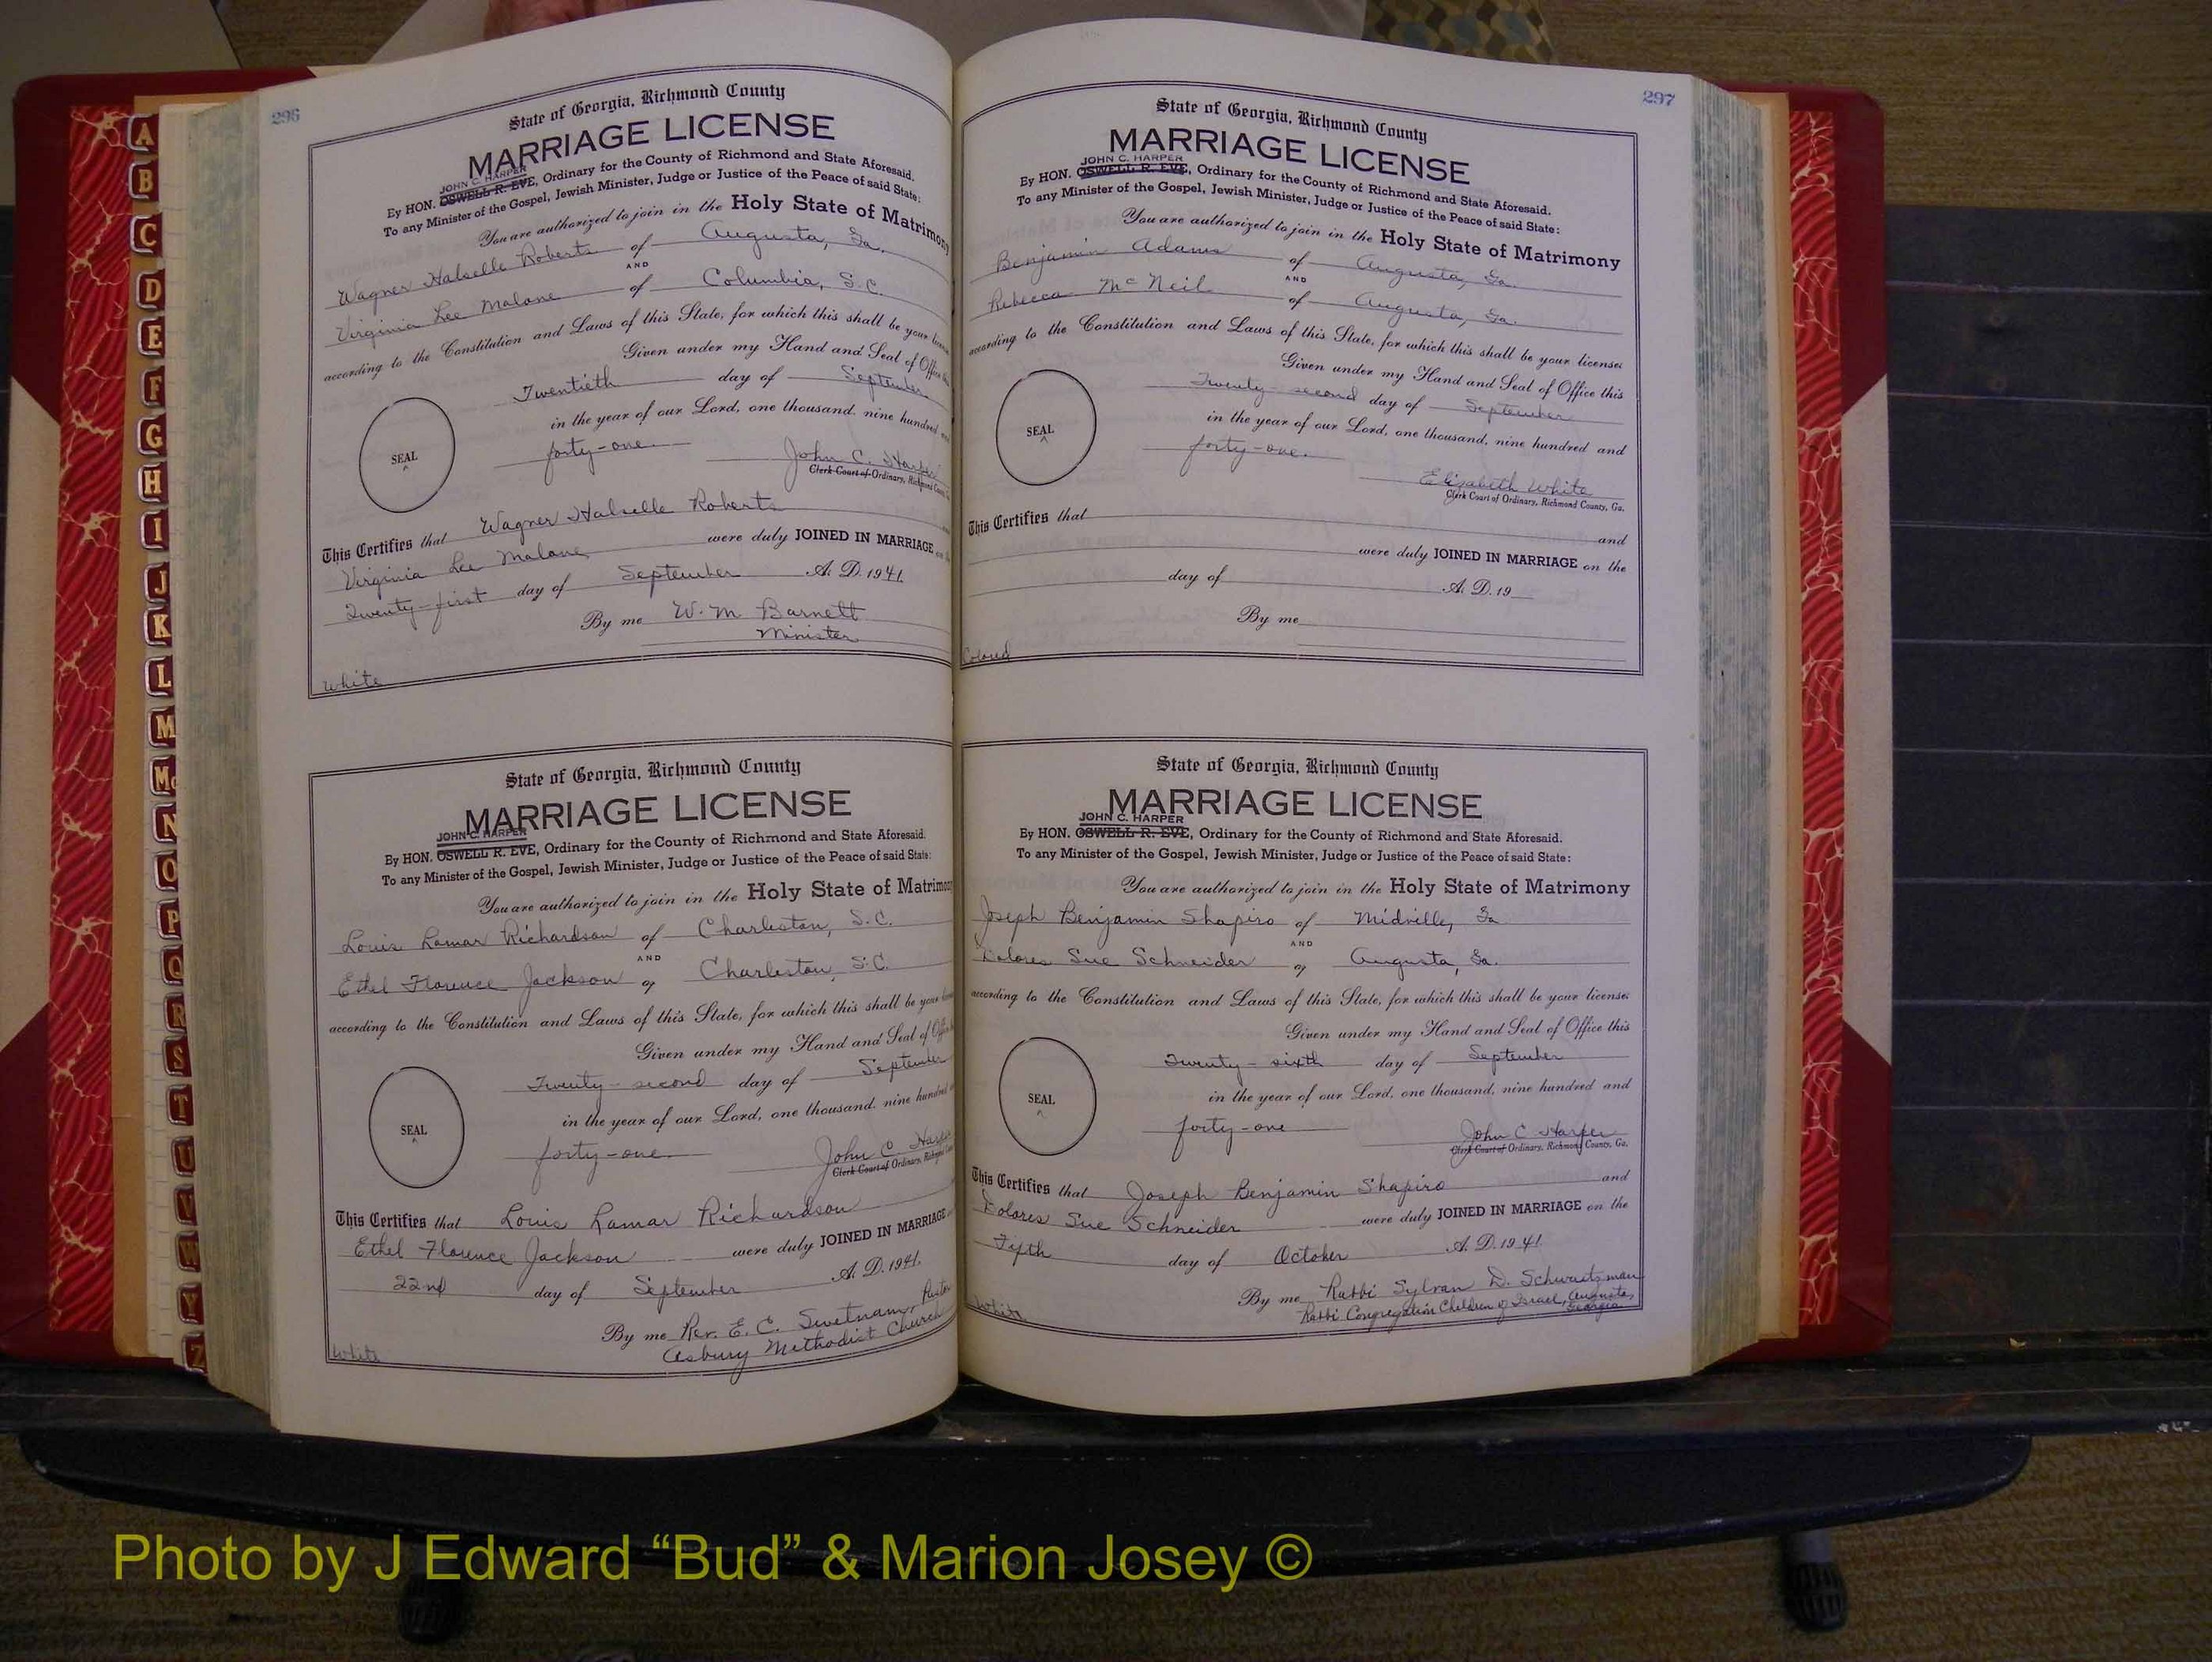 296
State of Georgia, Richmond County
MARRIAGE LICENSE
JOHN C. HARPER
By HON. OSWELL R. EVE, Ordinary for the County of Richmond and State Aforesaid.
To any Minister of the Gospel, Jewish Minister, Judge or Justice of the Peace of said State:
You are authorized to join in the Holy State of Matrimony
Wagner Halselle Roberts of Augusta, Ga.
AND
Virginia Lee Malone of Columbia, S.C.
according to the Constitution and Laws of this State, for which this shall be your
Given under my Hand and Seal of Office
Twentieth day of September
in the year of our Lord, one thousand, nine hundred
forty-one.
SEAL
John C. Harper
Clerk Court of Ordinary, Richmond
This Certifies that Wagner Halselle Roberts
Virginia Lee Malone were duly JOINED IN MARRIAGE
Twenty-first day of September A. D. 1941.
By me W. M. Barnett
Minister
White
State of Georgia, Richmond County
MARRIAGE LICENSE
JOHN C. HARPER
By HON. OSWELL R. EVE, Ordinary for the County of Richmond and State Aforesaid.
To any Minister of the Gospel, Jewish Minister, Judge or Justice of the Peace of said State:
You are authorized to join in the Holy State of Matrimony
Louis Lamar Richardson of Charleston, S.C.
AND
Ethel Florence Jackson of Charleston, S.C.
according to the Constitution and Laws of this State, for which this shall be your
Given under my Hand and Seal of
Twenty-second day of September
in the year of our Lord, one thousand, nine hundred
forty-one.
SEAL
John C. Harper
Clerk Court of Ordinary, Richmond
This Certifies that Louis Lamar Richardson
Ethel Florence Jackson were duly JOINED IN MARRIAGE
22nd day of September A. D. 1941.
By me Rev. E. C. Swetnam, Pastor
Asbury Methodist Church
White
297
State of Georgia, Richmond County
MARRIAGE LICENSE
JOHN C. HARPER
By HON. OSWELL R. EVE, Ordinary for the County of Richmond and State Aforesaid.
To any Minister of the Gospel, Jewish Minister, Judge or Justice of the Peace of said State:
You are authorized to join in the Holy State of Matrimony
Benjamin Adams of Augusta, Ga.
AND
Rebecca McNeil of Augusta, Ga.
according to the Constitution and Laws of this State, for which this shall be your license:
Given under my Hand and Seal of Office this
Twenty-second day of September
in the year of our Lord, one thousand, nine hundred and
forty-one.
SEAL
Elizabeth White
Clerk Court of Ordinary, Richmond County, Ga.
This Certifies that
and
were duly JOINED IN MARRIAGE on the
day of A. D. 19
By me
Colored
State of Georgia, Richmond County
MARRIAGE LICENSE
JOHN C. HARPER
By HON. OSWELL R. EVE, Ordinary for the County of Richmond and State Aforesaid.
To any Minister of the Gospel, Jewish Minister, Judge or Justice of the Peace of said State:
You are authorized to join in the Holy State of Matrimony
Joseph Benjamin Shapiro of Midville, Ga
AND
Dolores Sue Schneider of Augusta, Ga.
according to the Constitution and Laws of this State, for which this shall be your license:
Given under my Hand and Seal of Office this
Twenty-sixth day of September
in the year of our Lord, one thousand, nine hundred and
forty-one
SEAL
John C Harper
Clerk Court of Ordinary, Richmond County, Ga.
This Certifies that Joseph Benjamin Shapiro and
Dolores Sue Schneider were duly JOINED IN MARRIAGE on the
Fifth day of October A. D. 1941.
By me Rabbi Sylvan D. Schwartzman
Rabbi Congregation Children of Israel, Augusta,
Georgia
White
A
B
C
D
E
F
G
H
I
J
K
L
M
Mc
N
O
P
Q
R
S
T
U
V
W
Y
Z
Photo by J Edward “Bud” & Marion Josey ©